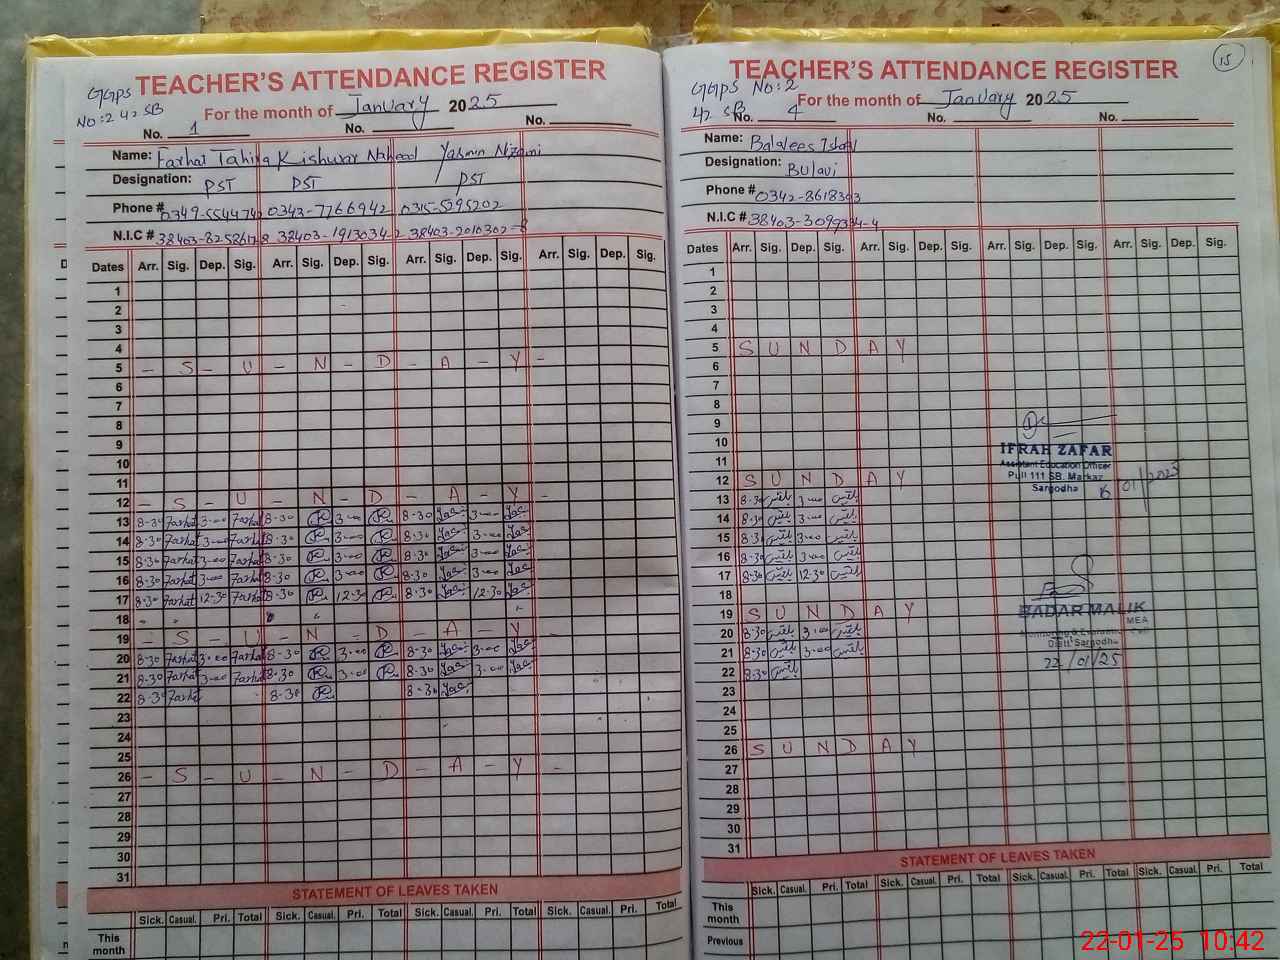 TEACHER'S ATTENDANCE REGISTER
GGPS
No:2 42 SB
For the month of January 2025
No. 1 No. No.
Name: Farhat Tahira Kishwar Naheed Yasmin Nizami
Designation: PST PST PST
Phone # 0343-7766942 0315-5295202
N.I.C # 38403-1913034-2 38403-2010302-8
Dates Arr. Sig. Dep. Sig. Arr. Sig. Dep. Sig. Arr. Sig. Dep. Sig. Arr. Sig. Dep. Sig.
1
2
3
4
5 - S - U - N - D - A - Y -
6
7
8
9
10
11
12 - S - U - N - D - A - Y -
13 8-30 Farhat 3-00 Farhat 8-30 3-00 8-30 3-00
14 8-30 Farhat 3-00 Farhat 8-30 3-00 8-30 3-00
15 8-30 Farhat 3-00 Farhat 8-30 3-00 8-30 3-00
16 8-30 Farhat 3-00 Farhat 8-30 3-00 8-30 3-00
17 8-30 Farhat 12-30 Farhat 8-30 12-30 8-30 12-30
18
19 - S - U - N - D - A - Y -
20 8-30 Farhat 3-00 Farhat 8-30 3-00 8-30 3-00
21 8-30 Farhat 3-00 Farhat 8-30 3-00 8-30 3-00
22 8-30 Farhat 8-30 8-30
23
24
25
26 - S - U - N - D - A - Y -
27
28
29
30
31
STATEMENT OF LEAVES TAKEN
Sick. Casual. Pri. Total Sick. Casual. Pri. Total Sick. Casual. Pri. Total Sick. Casual. Pri. Total
This month
15
TEACHER'S ATTENDANCE REGISTER
GGPS No:2
42 SB
For the month of January 2025
No. 4 No. No.
Name: Balqees
Designation: Bulavi
Phone # 0342-8618393
N.I.C #
Dates Arr. Sig. Dep. Sig. Arr. Sig. Dep. Sig. Arr. Sig. Dep. Sig. Arr. Sig. Dep. Sig.
1
2
3
4
5 S U N D A Y
6
7
8
9
10
11
12 S U N D A Y
13 8-30 بلقیس 3-00 بلقیس
14 8-30 بلقیس 3-00 بلقیس
15 8-30 بلقیس 3-00 بلقیس
16 8-30 بلقیس 3-00 بلقیس
17 8-30 بلقیس 12-30 بلقیس
18
19 S U N D A Y
20 8-30 بلقیس 3-00 بلقیس
21 8-30 بلقیس 3-00 بلقیس
22 8-30 بلقیس
23
24
25
26 S U N D A Y
27
28
29
30
31
IFRAH ZAFAR
Assistant Education Officer
Pull 111 SB. Markaz
Sargodha
16/01/2025
BADAR MALIK
MEA
Distt: Sargodha
22/01/25
STATEMENT OF LEAVES TAKEN
Sick. Casual. Pri. Total Sick. Casual. Pri. Total Sick. Casual. Pri. Total Sick. Casual. Pri. Total
This month
Previous
22-01-25 10:42